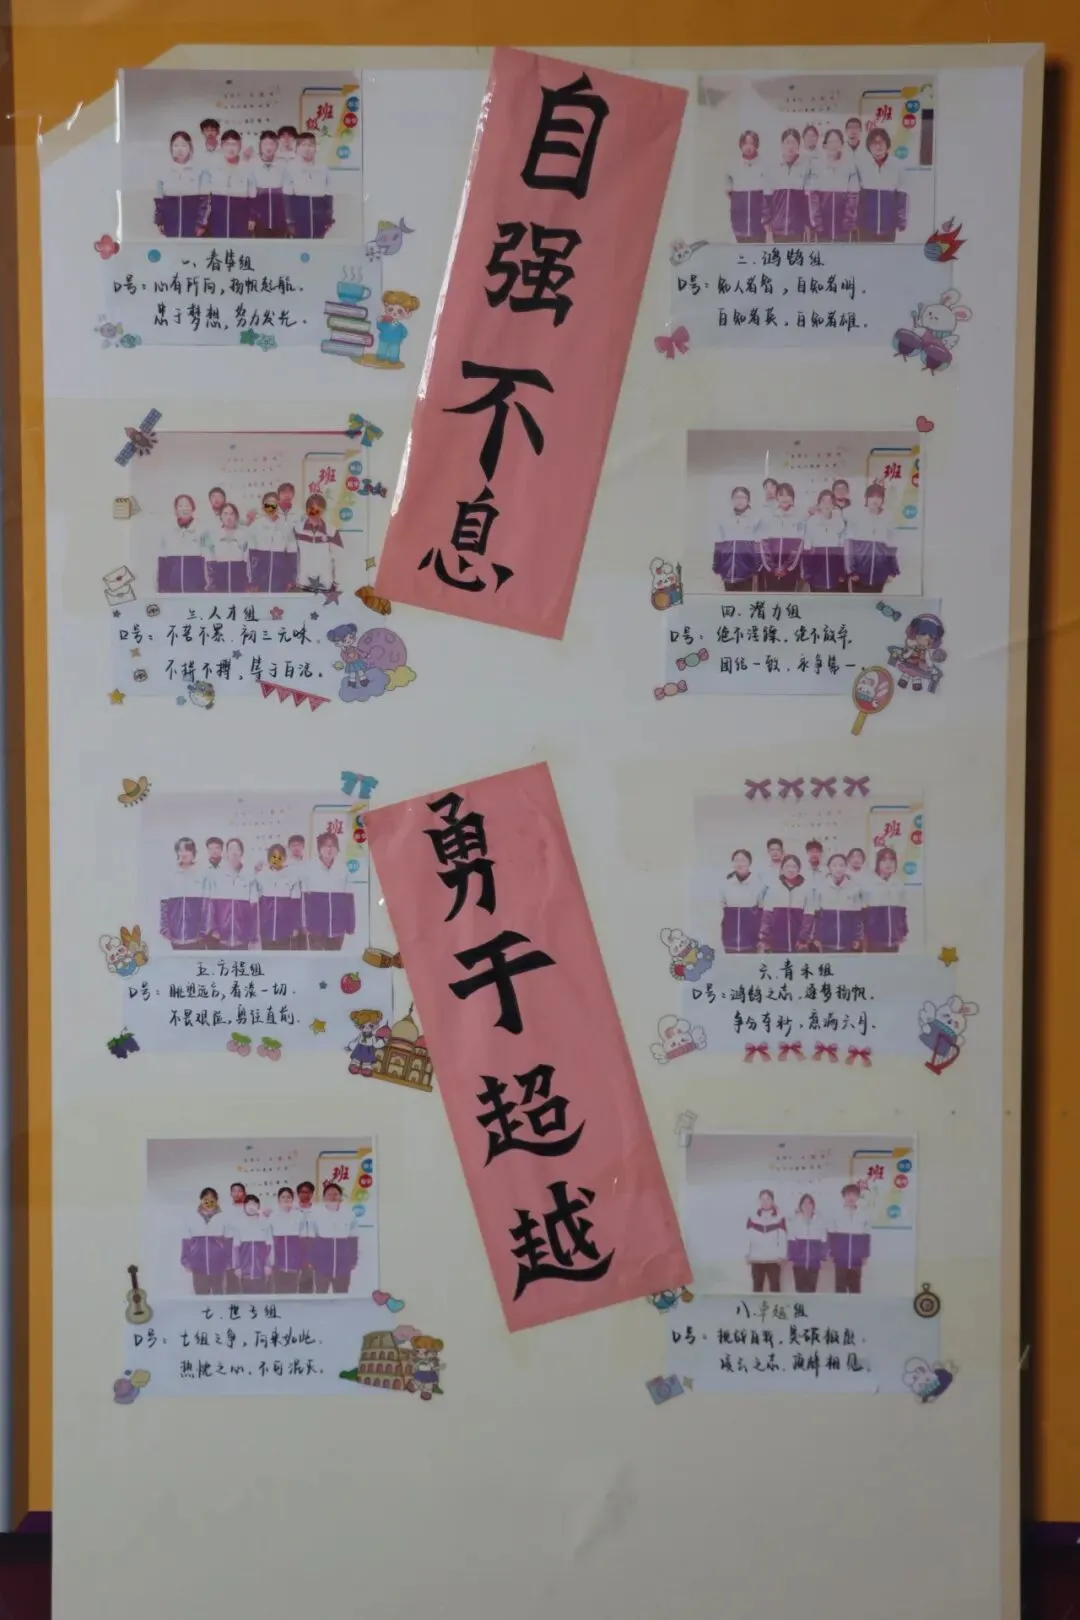 自强不息
勇于超越
一、春笋组
口号：心有所向，扬帆起航。
忠于梦想，努力发光。
二、鸿鹄组
口号：知人者智，自知者明。
自知者英，自知者雄。
三、人才组
口号：不苦不累，初三无味。
不拼不搏，等于白活。
四、潜力组
口号：绝不浮躁，绝不放弃。
团结一致，永争第一。
五、方程组
口号：眺望远方，看淡一切。
不畏艰险，勇往直前。
六、青禾组
口号：鸿鹄之志，逐梦扬帆。
争分夺秒，意满六月。
七组
口号：七组之争，向来如此。
热忱之心，不可泯灭。
八、卓越组
口号：挑战自我，突破极限。
凌云之志，顶峰相见。
班级